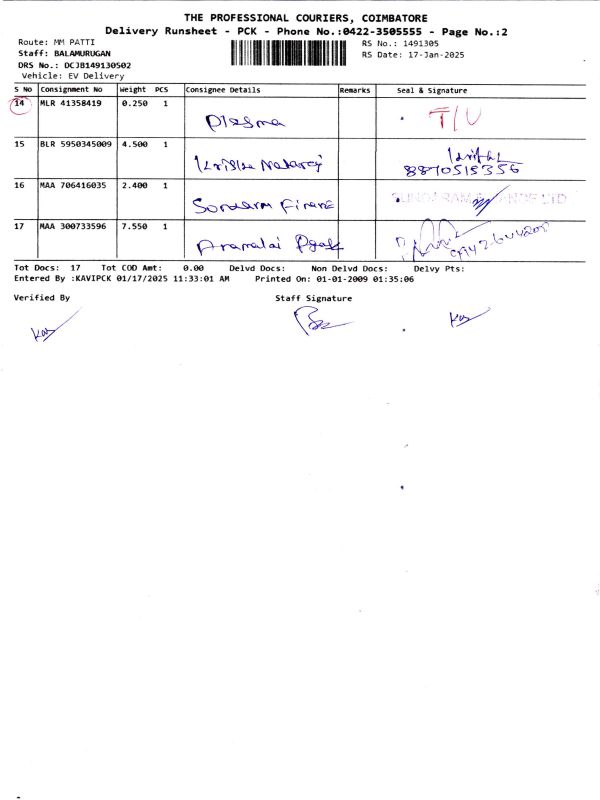 THE PROFESSIONAL COURIERS, COIMBATORE
Delivery Runsheet - PCK - Phone No.:0422-3505555 - Page No.:2
Route: MM PATTI
RS No.: 1491305
Staff: BALAMURUGAN
RS Date: 17-Jan-2025
DRS No.: DCJB149130502
Vehicle: EV Delivery
S No Consignment No Weight PCS Consignee Details Remarks Seal & Signature
14 MLR 41358419 0.250 1 Plasma T/U
15 BLR 5950345009 4.500 1 8870518356
16 MAA 706416035 2.400 1
17 MAA 300733596 7.550 1
Tot Docs: 17 Tot COD Amt: 0.00 Delvd Docs: Non Delvd Docs: Delvy Pts:
Entered By :KAVIPCK 01/17/2025 11:33:01 AM Printed On: 01-01-2009 01:35:06
Verified By Staff Signature